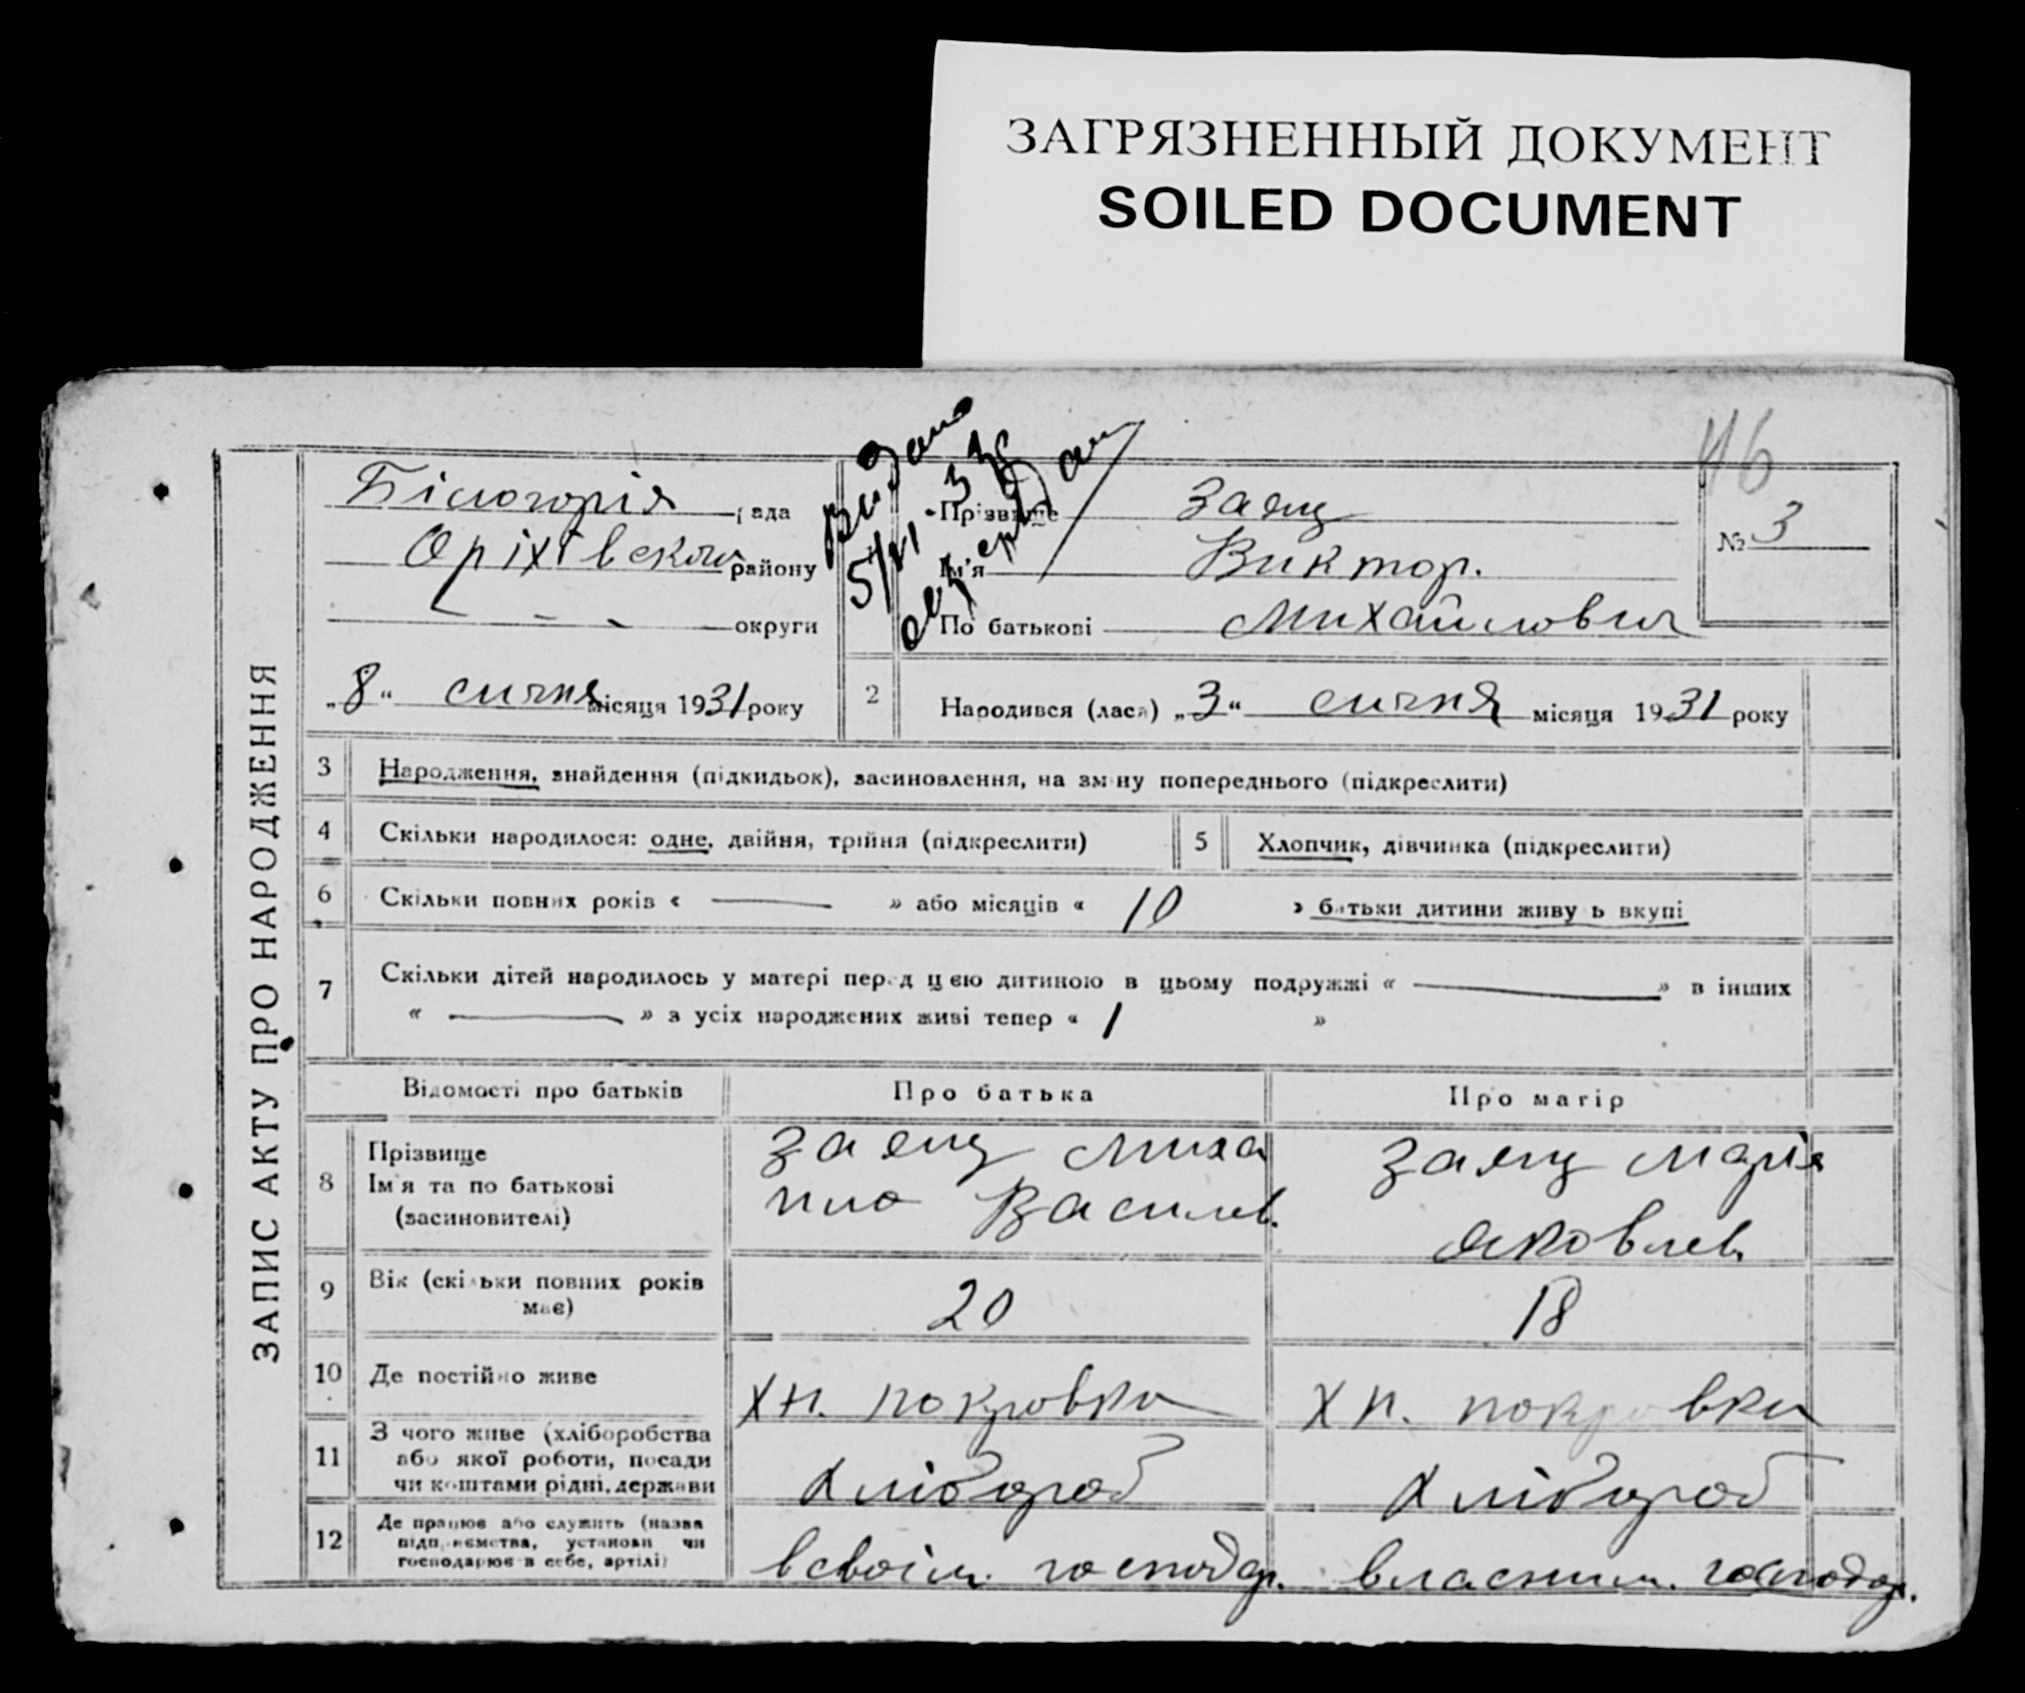 ЗАГРЯЗНЕННЫЙ ДОКУМЕНТ
SOILED DOCUMENT
46
ЗАПИС АКТУ ПРО НАРОДЖЕННЯ
Білогорія рада
Оріхівського району
округи
"8" сичня місяця 1931 року
видано
Прізвище Заяц
Ім'я Виктор.
По батькові Михайлович
№ 3
2 Народився (лася) "3" сичня місяця 1931 року
3 Народження, знайдення (підкидьок), засиновлення, на зміну попереднього (підкреслити)
4 Скільки народилося: одне, двійня, трійня (підкреслити)
5 Хлопчик, дівчинка (підкреслити)
6 Скільки повних років « — » або місяців « 10 » батьки дитини живуть вкупі
7 Скільки дітей народилось у матері перед цією дитиною в цьому подружжі « — » в інших
« — » з усіх народжених живі тепер « 1 »
Відомості про батьків Про батька Про матір
8 Прізвище
Ім'я та по батькові
(засиновителі)
Заяц Миха
йло Василев.
Заяц Марія
Яковлев.
9 Вік (скільки повних років
має)
20 18
10 Де постійно живе
хп. покровка хп. покровка
11 З чого живе (хліборобства
або якої роботи, посади
чи коштами рідні, держави
хлібороб хлібороб
12 Де працює або служить (назва
підприємства, установи чи
господарює в себе, артілі)
в своім. господар. власним. господар.